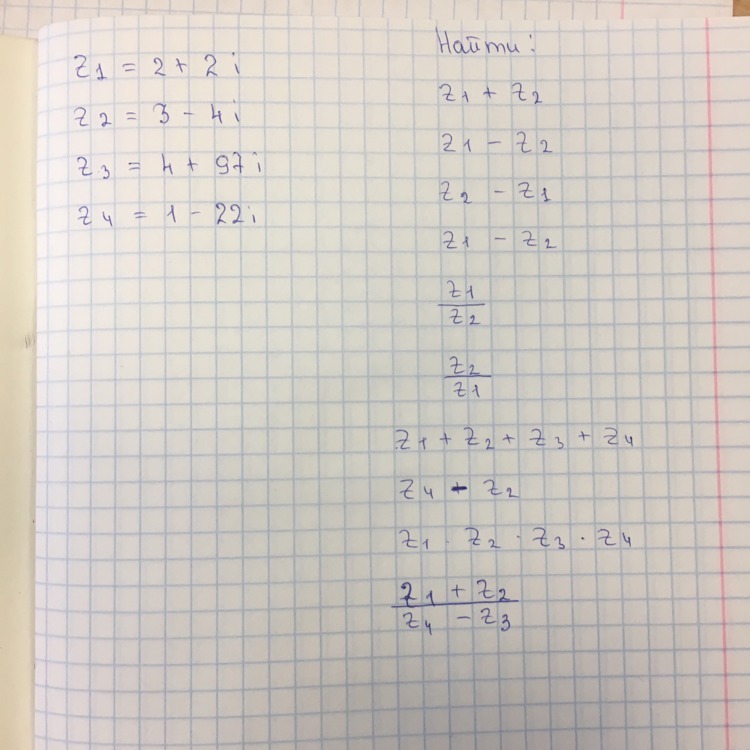 z₁ = 2 + 2i
z₂ = 3 - 4i
z₃ = 4 + 97i
z₄ = 1 - 22i
Найти:
z₁ + z₂
z₁ - z₂
z₂ - z₁
z₁ - z₂
z₁
z₂
z₂
z₁
z₁ + z₂ + z₃ + z₄
z₄ - z₂
z₁ · z₂ · z₃ · z₄
z₁ + z₂
z₄ - z₃